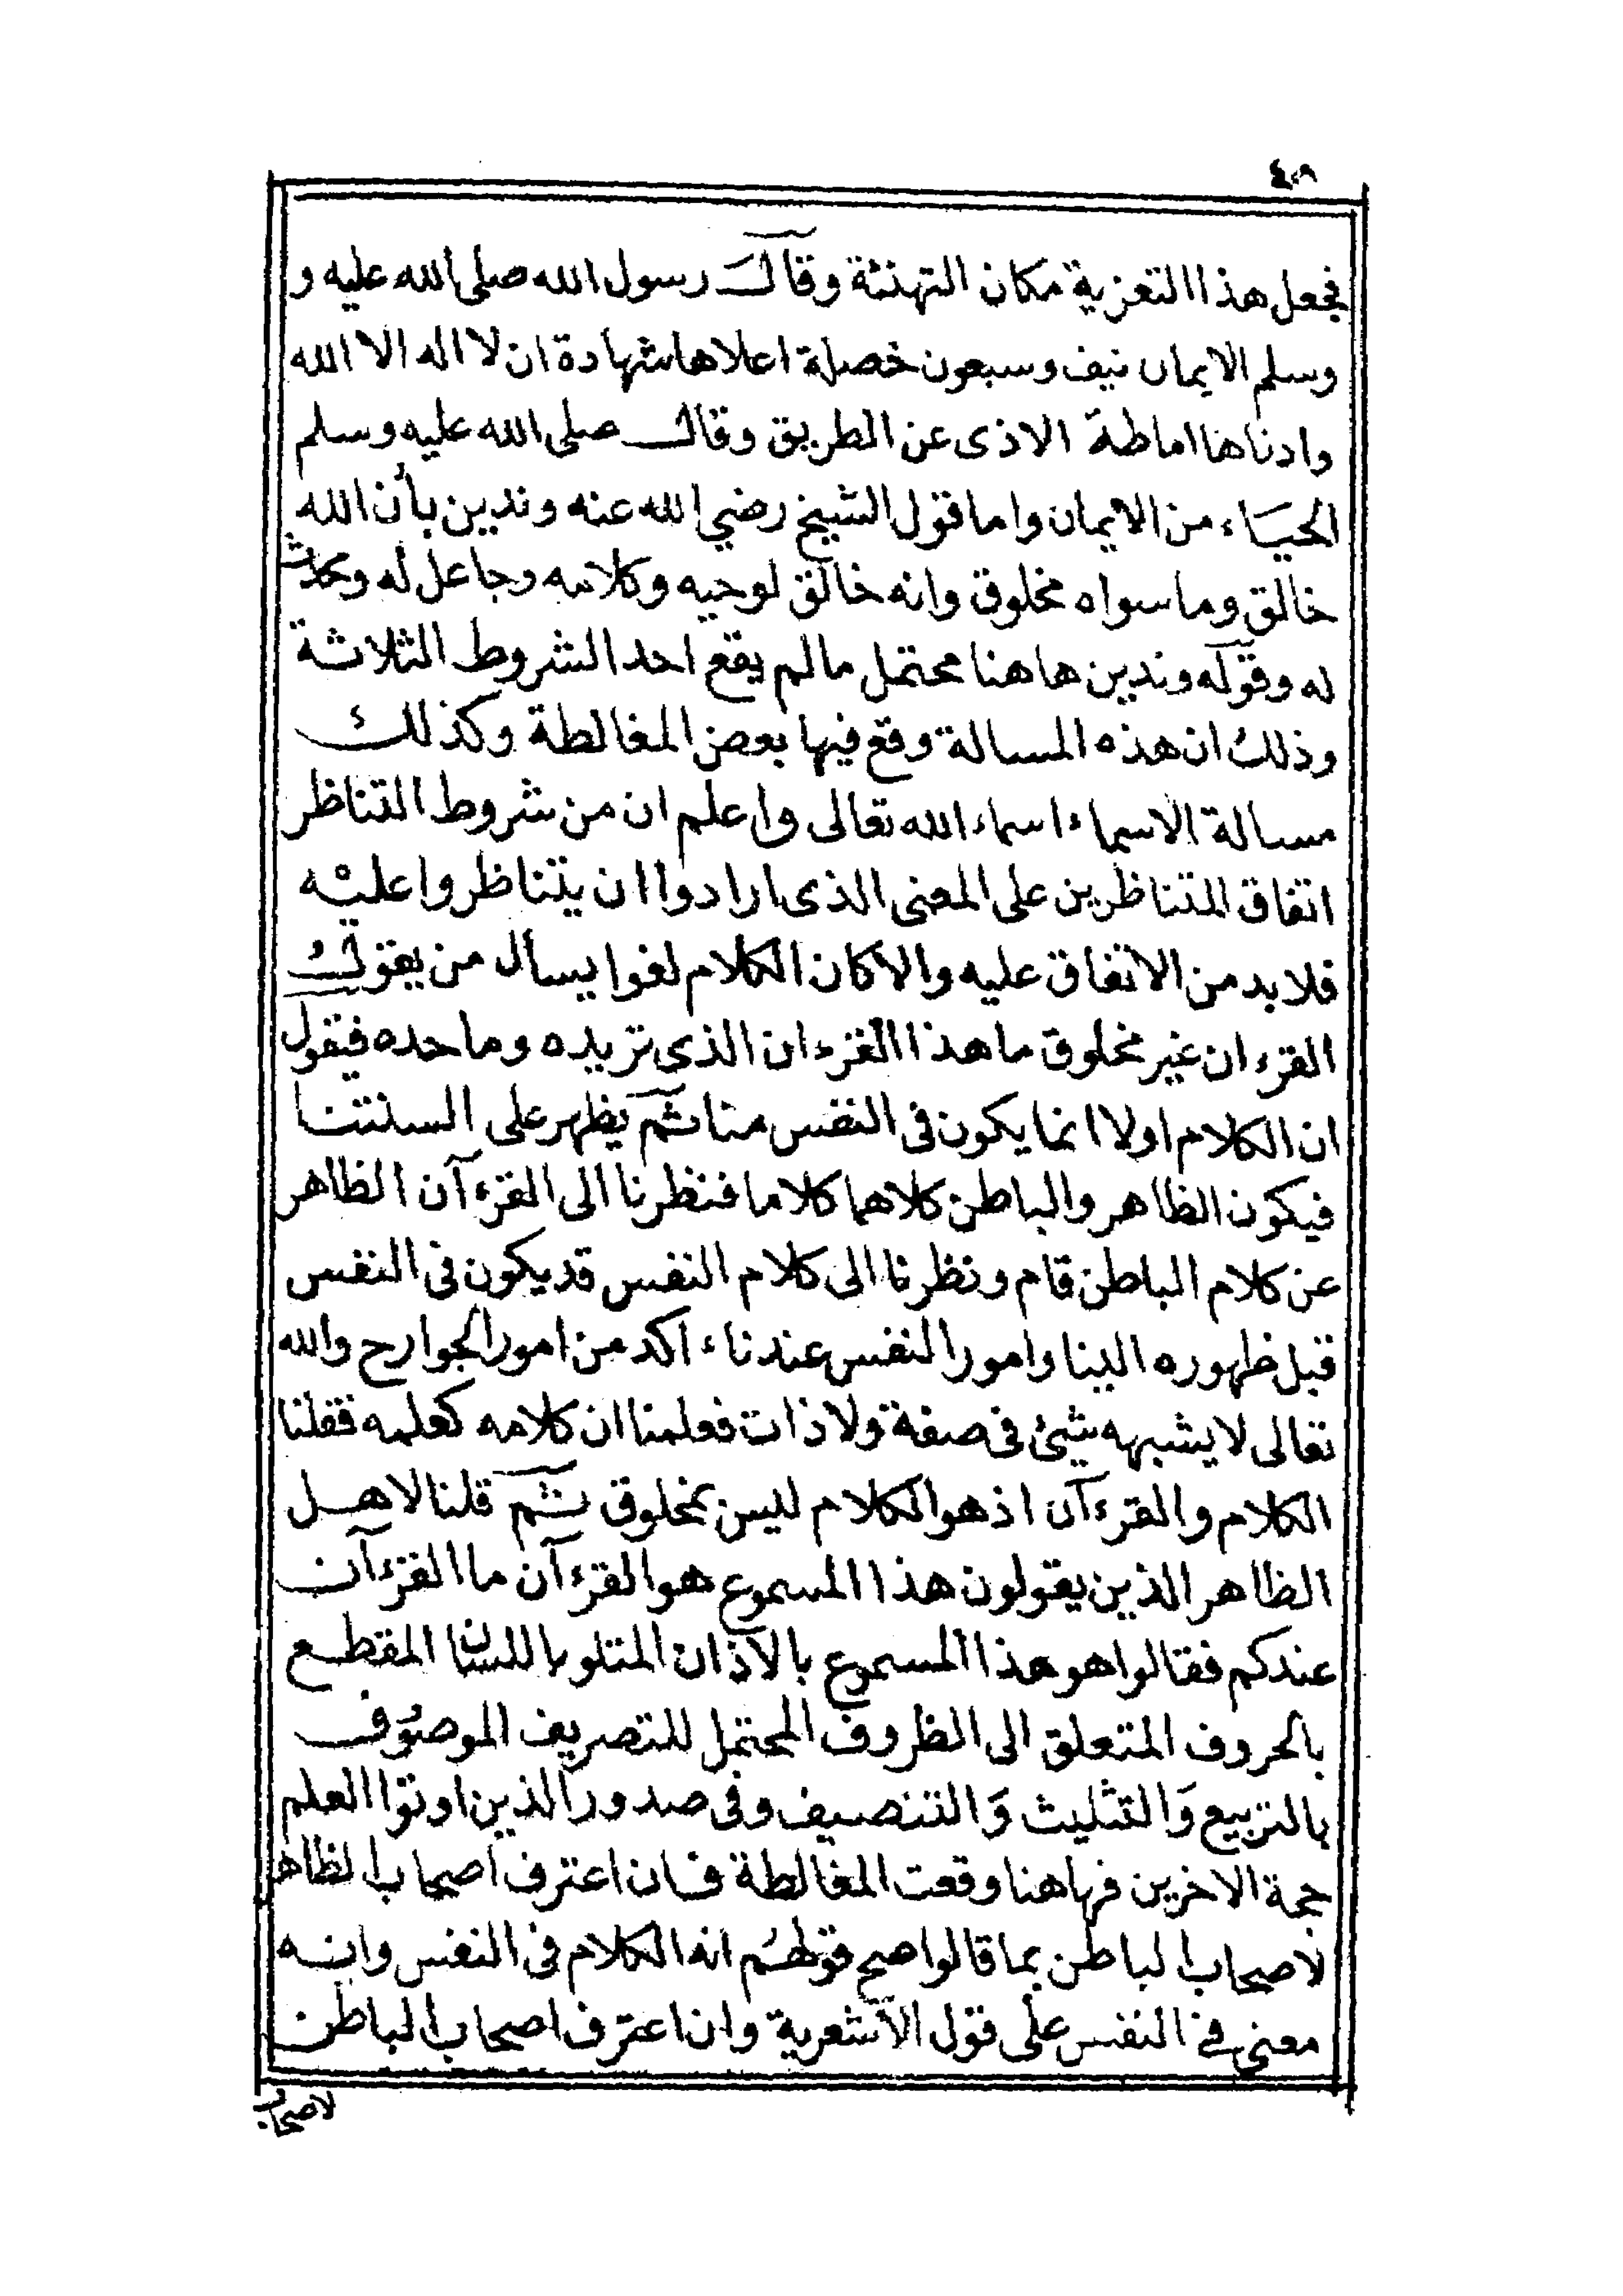 ٤٠٨
فجعل هذا التعزية مكان التهنئة وقال رسول الله صلى الله عليه و
وسلم الايمان نيف وسبعون خصلة اعلاها شهادة ان لا اله الا الله
وادناها اماطة الاذى عن الطريق وقال صلى الله عليه وسلم
الحياء من الايمان واما قول الشيخ رضي الله عنه وندين بأن الله
خالق وما سواه مخلوق وانه خالق لوحيه وكلامه وجاعل له ومحدث
له وقوله وندين هاهنا محتمل مالم يقع احد الشروط الثلاثة
وذلك ان هذه المسالة وقع فيها بعض المغالطة وكذلك
مسالة الاسماء اسماء الله تعالى واعلم ان من شروط التناظر
اتفاق المتناظرين على المعنى الذى ارادوا ان يتناظروا عليه
فلا بد من الاتفاق عليه والا كان الكلام لغوا يسأل من يقول
القرءان غير مخلوق ما هذا القرءان الذى تريده وما حده فيقول
ان الكلام اولا انما يكون فى النفس منا ثم يظهر على السنتنا
فيكون الظاهر والباطن كلاهما كلاما فنظرنا الى القرءآن الظاهر
عن كلام الباطن قام ونظرنا الى كلام النفس قد يكون فى النفس
قبل ظهوره الينا وامور النفس عندناء اكد من امور الجوارح والله
تعالى لا يشبهه شيئ فى صفة ولا ذات فعلمنا ان كلامه كعلمه فقلنا
الكلام والقرءآن اذ هو الكلام ليس بمخلوق ثم قلنا لاهل
الظاهر الذين يقولون هذا المسموع هو القرءآن ما القرءآن
عندكم فقالوا هو هذا المسموع بالآذان المتلو باللسان المقطع
بالحروف المتعلق الى الظروف المحتمل للتصريف الموصوف
بالتربيع والتثليث والتنصيف وفى صدور الذين اوتوا العلم
حجة الاخرين فهاهنا وقعت المغالطة فان اعترف اصحاب الظاهر
لاصحاب الباطن بما قالوا صح قولهم انه الكلام فى النفس وانه
معنى في النفس على قول الأشعرية وان اعترف اصحاب الباطن
لاصحاب